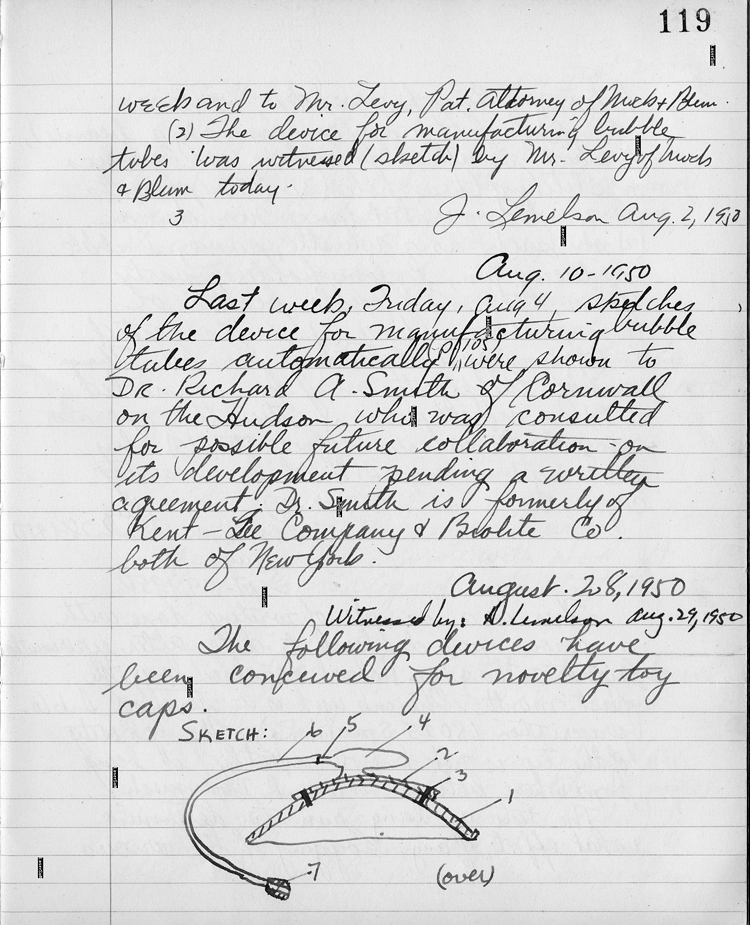 119
week and to Mr. Levy, Pat. Attorney of Mock & Blum.
(2) The device for manufacturing bubble
tubes was witnessed (sketch) by Mr. Levy of Mock
& Blum today.
3
J. Lemelson Aug. 2, 1950
Aug. 10-1950
Last week, Friday, Aug 4, sketches
of the device for manufacturing bubble
tubes automatically were shown to
Dr. Richard A. Smith of Cornwall
on the Hudson who was consulted
for possible future collaboration on
its development pending a written
agreement. Dr. Smith is formerly of
Kent-Lee Company & Co.
both of New York.
August. 28, 1950
Witnessed by: D. Lemelson Aug. 29, 1950
The following devices have
been conceived for novelty toy
caps.
SKETCH:
6 5 4
2
3
1
7
(over)